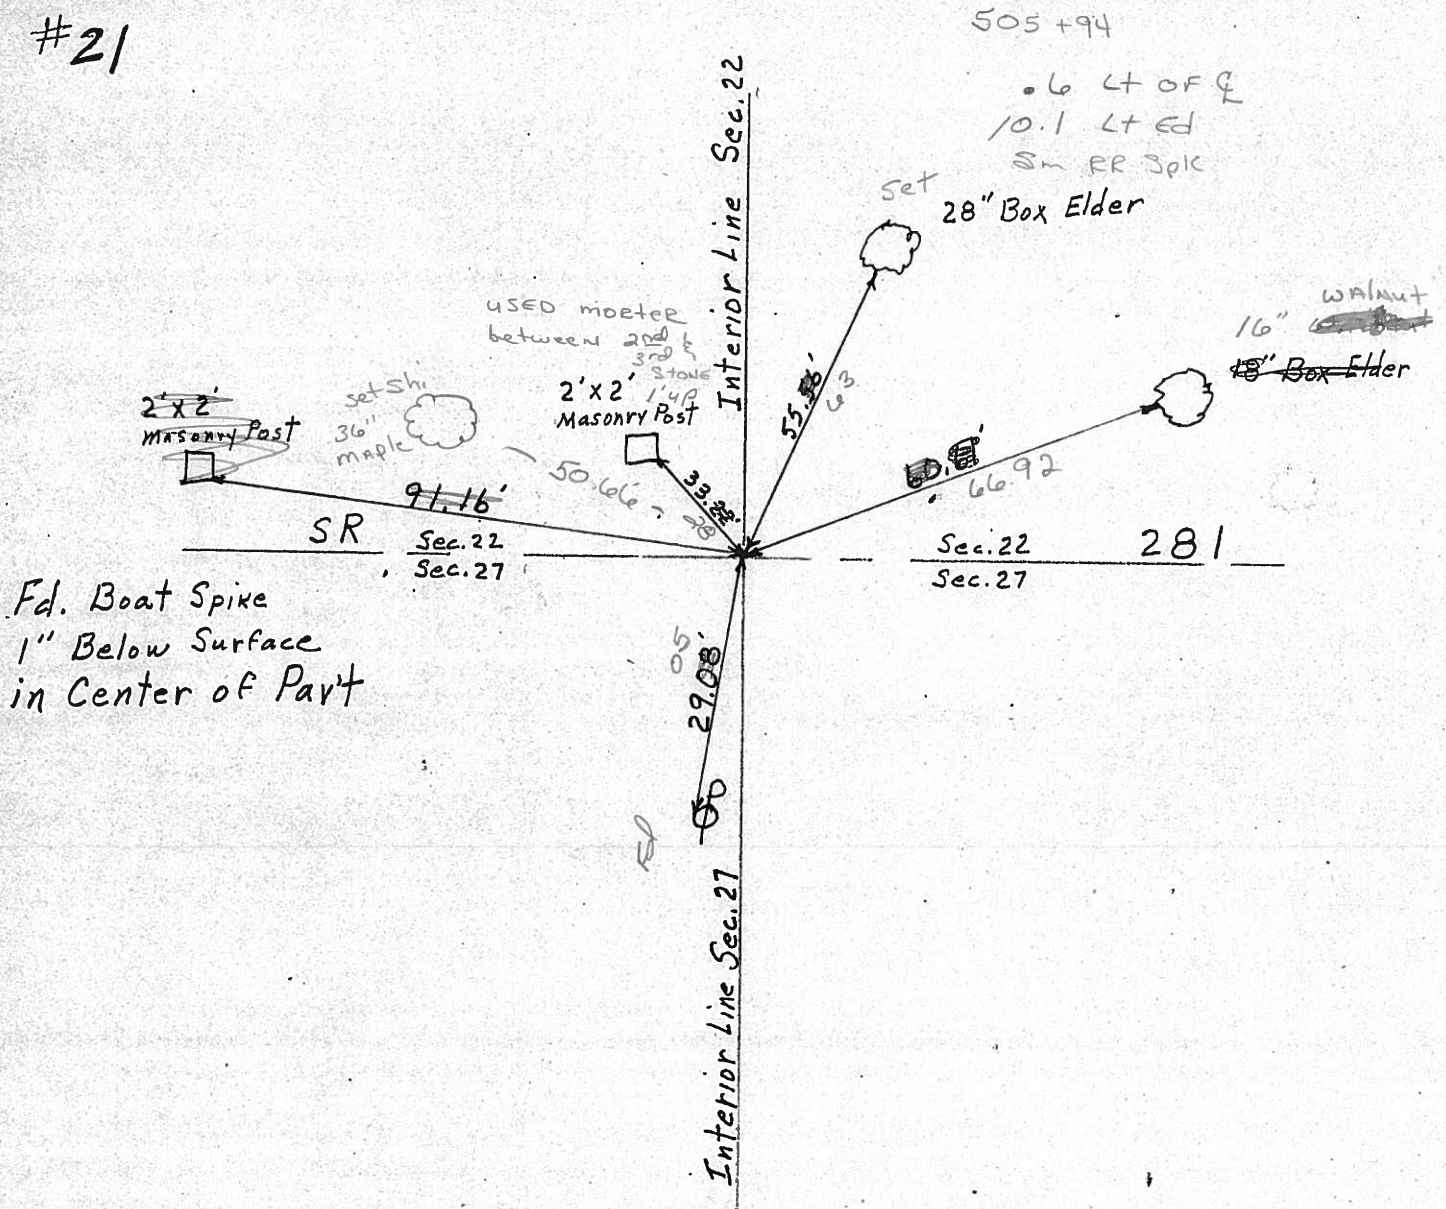 #21
505 +94
.6 Lt OF ℄
10.1 Lt Ed
Sm RR Spk
Set
28" Box Elder
Interior Line Sec. 22
WAlnut
16"
18" Box Elder
USED morter
between 2nd &
3rd
STONE
1' up
2'x2'
Masonry Post
set
36"
MAPle
2'x2'
Masonry Post
55.
63
66.92
50.66
33.22'
28
91.16'
SR
Sec. 22
Sec. 27
Sec. 22
Sec. 27
281
Fd. Boat Spike
1" Below Surface
in Center of Pav't
05
29.08'
Fd
Interior Line Sec. 27